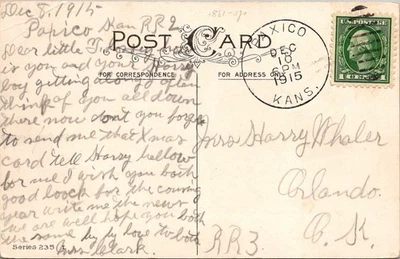 Dec 8, 1915
Paxico Kan RR2
POST CARD
FOR CORRESPONDENCE
FOR ADDRESS ONLY
PAXICO
DEC
10
PM
1915
KANS.
U.S. POSTAGE
Dear little
is you and your
boy getting along
think of you all down
there now dont you forget
to send me that Xmas
card tell Harry hellow
for me I wish you both
good loock for the coming
year write me the news
we are well hope you both
the same by by love to both
Mrs Clark.
Mrs Harry Whaler
Orlando.
O. K.
RR3.
Series 235